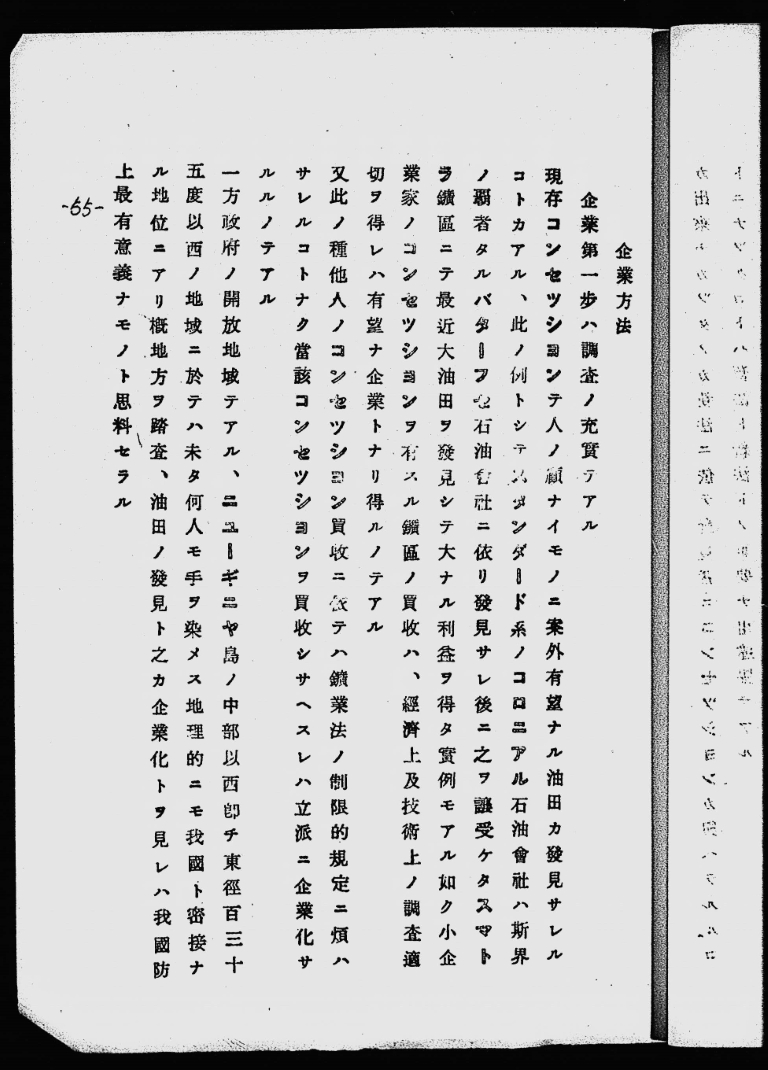 企業方法
企業第一步ハ調査ノ充實テアル
現存コンセツシヨンテ人ノ顧ナイモノニ案外有望ナル油田カ發見サレル
コトカアル、此ノ例トシテスタンダード系ノコロニアル石油會社ハ斯界
ノ覇者タルバターフセ石油會社ニ依リ發見サレ後ニ之ヲ讓受ケタスマト
ラ鑛區ニテ最近大油田ヲ發見シテ大ナル利益ヲ得タ實例モアル如ク小企
業家ノコンセツシヨンヲ有スル鑛區ノ買收ハ、經濟上及技術上ノ調査適
切ヲ得レハ有望ナ企業トナリ得ルノテアル
又此ノ種他人ノコンセツシヨン買收ニ依テハ鑛業法ノ制限的規定ニ煩ハ
サレルコトナク當該コンセツシヨンヲ買收シサヘスレハ立派ニ企業化サ
ルルノテアル
一方政府ノ開放地域テアル、ニユーギニヤ島ノ中部以西卽チ東徑百三十
五度以西ノ地域ニ於テハ未タ何人モ手ヲ染メス地理的ニモ我國ト密接ナ
ル地位ニアリ槪地方ヲ踏査、油田ノ發見ト之カ企業化トヲ見レハ我國防
上最有意義ナモノト思料セラル
-65-